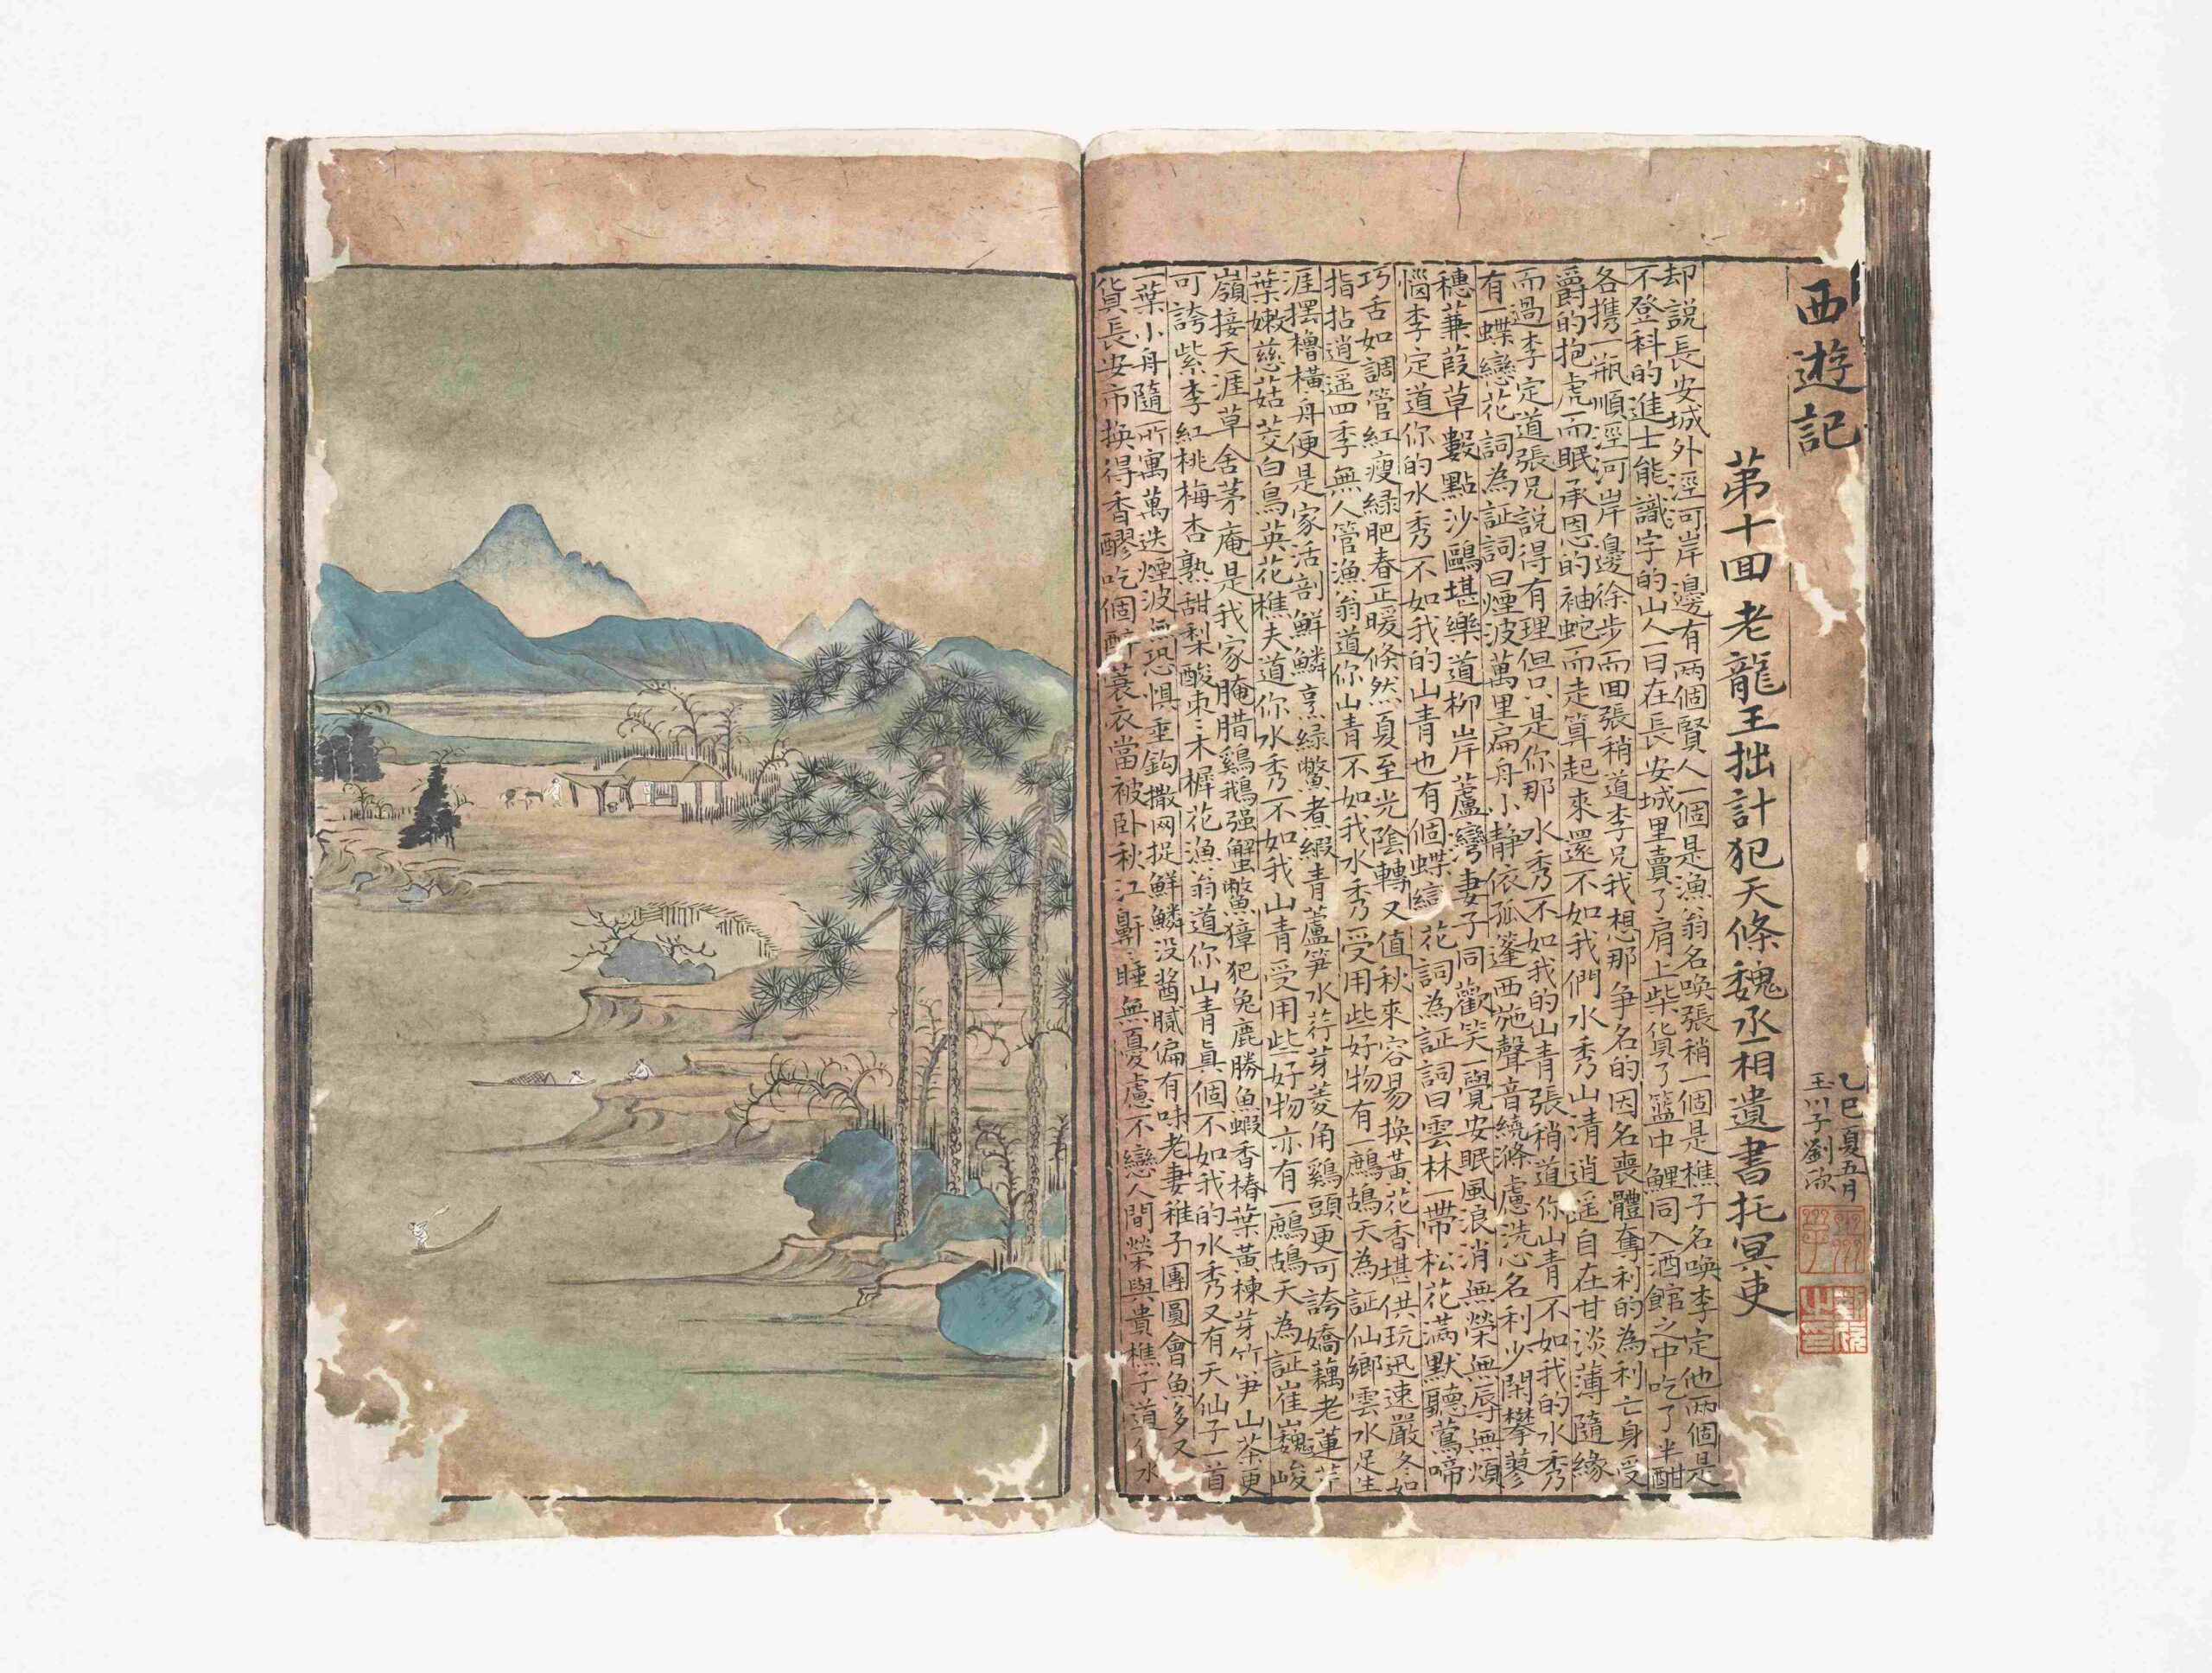 西遊記
乙巳夏五月
玉川子劉
第十回老龍王拙計犯天條魏丞相遺書托冥吏
却説長安城外涇河岸邊有两個賢人一個是漁翁名喚張稍一個是樵子名喚李定他两個是
不登科的進士能識字的山人一日在長安城里賣了肩上柴貨了籃中鯉同入酒館之中吃了半酣
各携一瓶順涇河岸邊徐步而回張稍道李兄我想那争名的因名喪體奪利的為利亡身受
爵的抱虎而眠承恩的袖蛇而走算起來還不如我們水秀山清逍遥自在甘淡薄隨緣
而過李定道張兄説得有理但只是你那水秀不如我的山青張稍道你山青不如我的水秀
有一蝶戀花詞為証詞曰煙波萬里扁舟小静依孤篷西施聲音繞滌慮洗心名利少閑攀蓼
穗蒹葭草數點沙鷗堪樂道柳岸蘆灣妻子同歡笑一覺安眠風浪消無榮無辱無煩
惱李定道你的水秀不如我的山青也有個蝶戀花詞為証詞曰雲林一帶松花满默聽鶯啼
巧舌如調管紅瘦緑肥春正暖倏然夏至光陰轉又值秋來容易换黄花香堪供玩迅速嚴冬如
指拈逍遥四季無人管漁翁道你山青不如我水秀受用些好物有一鷓鴣天為証仙鄉雲水足生
涯擺櫓横舟便是家活剖鮮鱗烹緑鱉煮蝦青蘆笋水荇芽菱角鷄頭更可誇嬌藕老蓮芹
葉嫩慈菇茭白鳥英花樵夫道你水秀不如我山青受用些好物亦有一鷓鴣天為証崔巍峻
嶺接天涯草舍茅庵是我家腌腊鷄鵝强蟹鱉獐犯兔鹿勝魚蝦香椿葉黄楝芽竹笋山茶更
可誇紫李紅桃梅杏熟甜梨酸枣木樨花漁翁道你山青真個不如我的水秀又有天仙子一首
一葉小舟隨所寓萬迭煙波無恐惧垂鈎撒网捉鮮鱗没醬膩偏有味老妻稚子團圓會魚多又
貨長安市换得香醪吃個醉蓑衣當被卧秋江鼾〻睡無憂慮不戀人間榮與貴樵子道你水